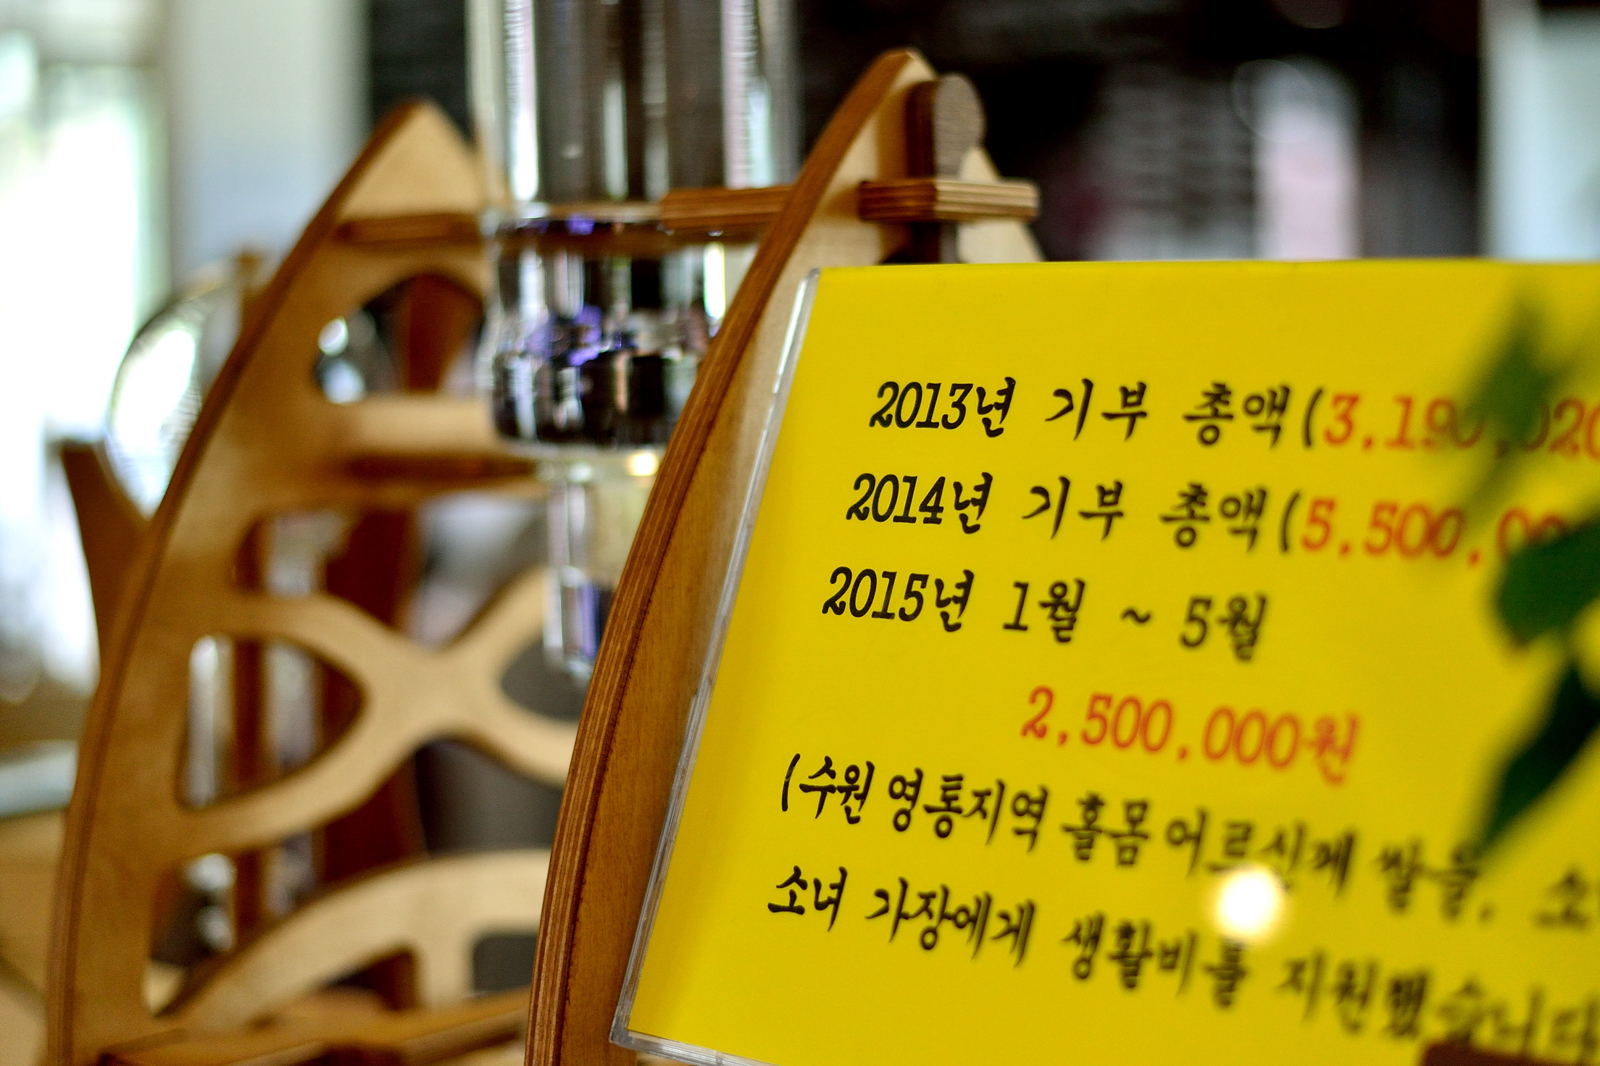 2013년 기부 총액(3,190,020
2014년 기부 총액(5,500,00
2015년 1월 ~ 5월
2,500,000원
(수원 영통지역 홀몸 어르신께 쌀을,
소녀 가장에게 생활비를 지원했습니다